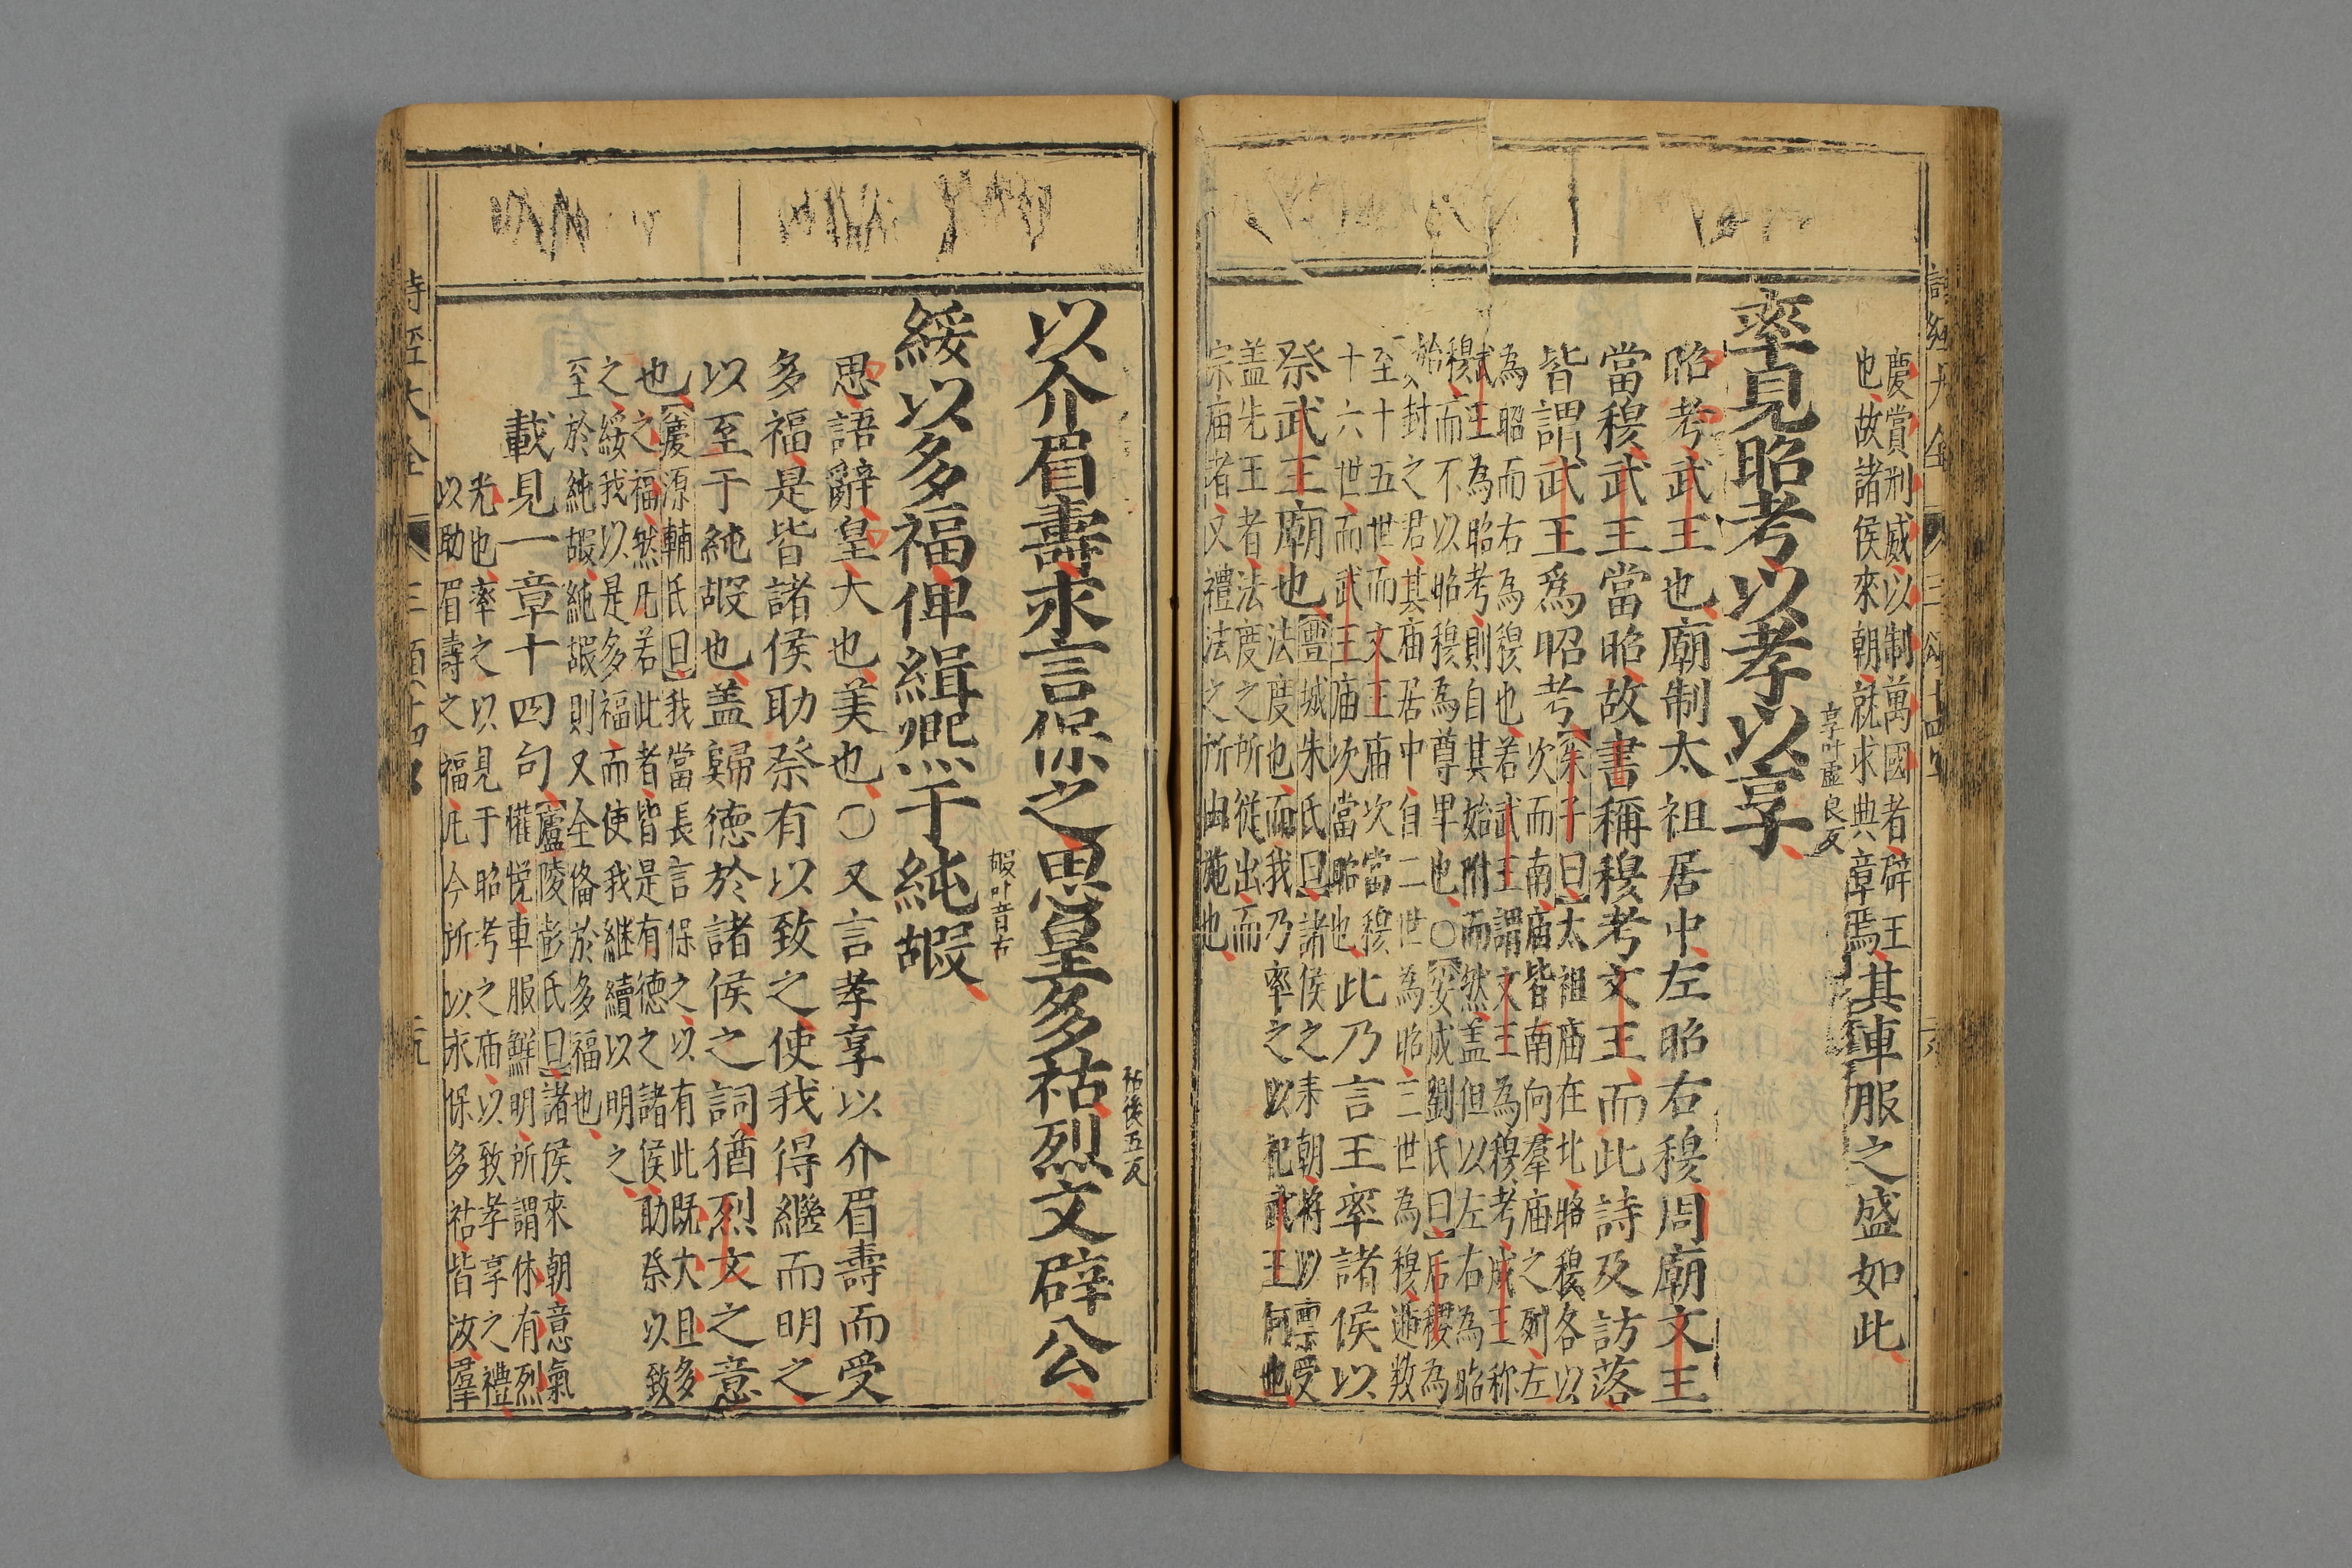 慶賞刑威以制萬國者辟王
也故諸侯來朝就求典章焉其車服之盛如此
率見昭考以孝以享
享叶虛良反
昭考武王也廟制太祖居中左昭右穆周廟文王
當穆武王當昭故書稱穆考文王而此詩及訪落
皆謂武王爲昭考
朱子曰太祖廟在北昭穆各以
次而南廟皆南向羣廟之列左
為昭而右為穆也若武王謂文王為穆考成王称
武王為昭考則自其始附而然盖但以左右為昭
穆而不以昭穆為尊卑也○安成劉氏曰后稷為
始封之君其庙居中自二世為昭三世為穆遞数
至十五世而文王庙次當穆
十六世而武王庙次當昭也此乃言王率諸侯以
祭武王廟也
豐城朱氏曰諸侯之来朝將以禀受
法度也而我乃率之以祀武王何也
盖先王者法度之所從出而
宗庙者又禮法之所由施也
以介眉壽永言保之思皇多祜烈文辟公
祜後五反
綏以多福俾緝熙于純嘏
嘏叶音古
思語辭皇大也美也○又言孝享以介眉壽而受
多福是皆諸侯助祭有以致之使我得繼而明之
以至于純嘏也盖歸德於諸侯之詞猶烈文之意
也
慶源輔氏曰我當長言保之以有此既大且多
之福然凡若此者皆是有德之諸侯助祭以致
之綏我以是多福而使我継續以明之
至於純嘏純嘏則又全偹於多福也
載見一章十四句
廬陵彭氏曰諸侯來朝意氣
懽悦車服鮮明所謂休有烈
光也率之以見于昭考之庙以致孝享之禮
以助眉壽之福凡今所以永保多祜皆汝羣
詩經大全
三頌十四